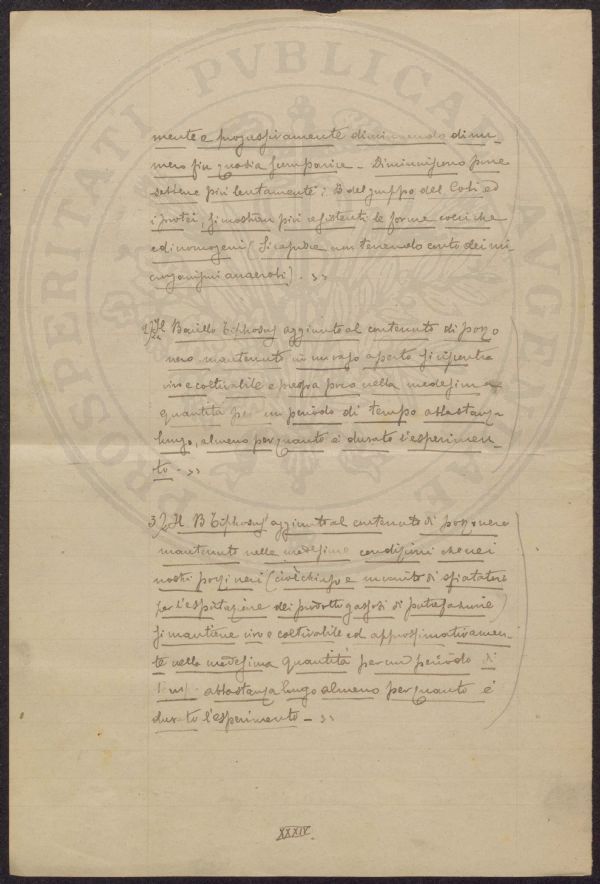 PROSPERITATI PVBLICAE AVGENDAE
mente e progressivamente diminuendo di nu-
mero fin quasi a scomparire - Diminuiscono pure
sebbene più lentamente i B del gruppo del Coli ed
i protei, si mostran più resistenti le forme cocciche
ed i cromogeni (Si capisce non tenendo conto dei mi-
crorganismi anaerobi). »
2) Il Bacillo Tiphosus aggiunto al contenuto di pozzo
nero mantenuto in un vaso aperto si riscontra
vivo e coltivabile e presso a poco nella medesima
quantità per un periodo di tempo abbastanza
lungo, almeno per quanto è durato l'esperimen-
to - »
3) Il B Tiphosus aggiunto al contenuto di pozzo nero
mantenuto nelle medesime condizioni che nei
nostri pozzi neri (cioè chiuso e munito di sfiatatoio
per l'espirazione dei prodotti gassosi di putrefazione)
si mantiene vivo e coltivabile ed approssimativamen-
te nella medesima quantità per un periodo di
abbastanza lungo almeno per quanto è
durato l'esperimento - »
XXXIV.